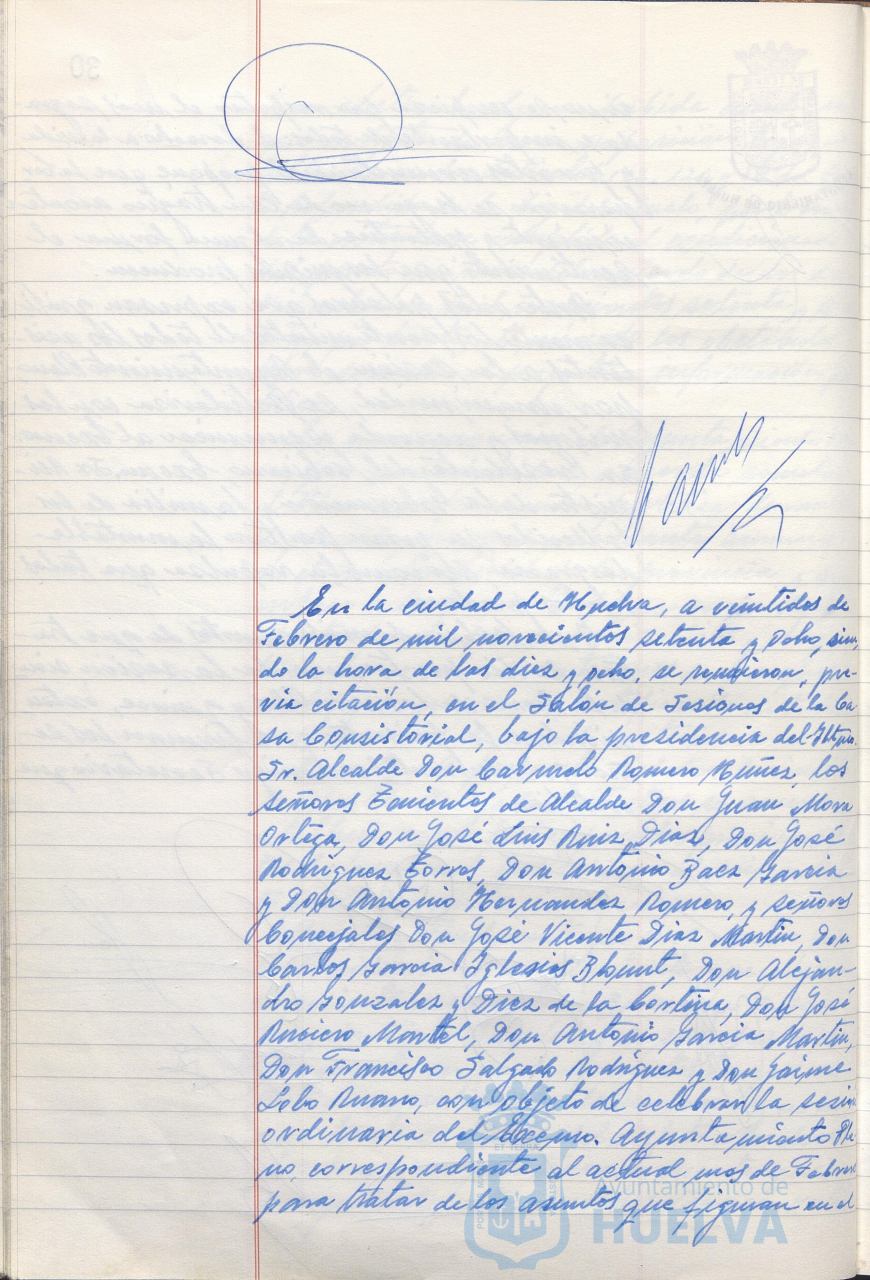 En la ciudad de Huelva, a veintidos de
Febrero de mil novecientos setenta y ocho, sien-
do la hora de las diez y ocho, se reunieron, pre-
via citación, en el Salón de Sesiones de la Ca
sa Consistorial, bajo la presidencia del Iltmo.
Sr. Alcalde Don Carmelo Romero Núñez, los
señores Tenientes de Alcalde Don Juan Mora
Ortega, Don José Luis Ruiz Diaz, Don José
Rodriguez Torres, Don Antonio Baez Garcia
y Don Antonio Hernandez Romero, y señores
Concejales Don José Vicente Diaz Martin, Don
Carlos Garcia Iglesias Blount, Don Alejan-
dro Gonzalez y Diez de la Cortina, Don José
Rociero Martel, Don Antonio Garcia Martin,
Don Francisco Salgado Rodriguez y Don Jaime
Lobo Ruano, con objeto de celebrar la sesion
ordinaria del Excmo. Ayuntamiento Ple
no, correspondiente al actual mes de Febrero
para tratar de los asuntos que figuran en el
Ayuntamiento de
HUELVA